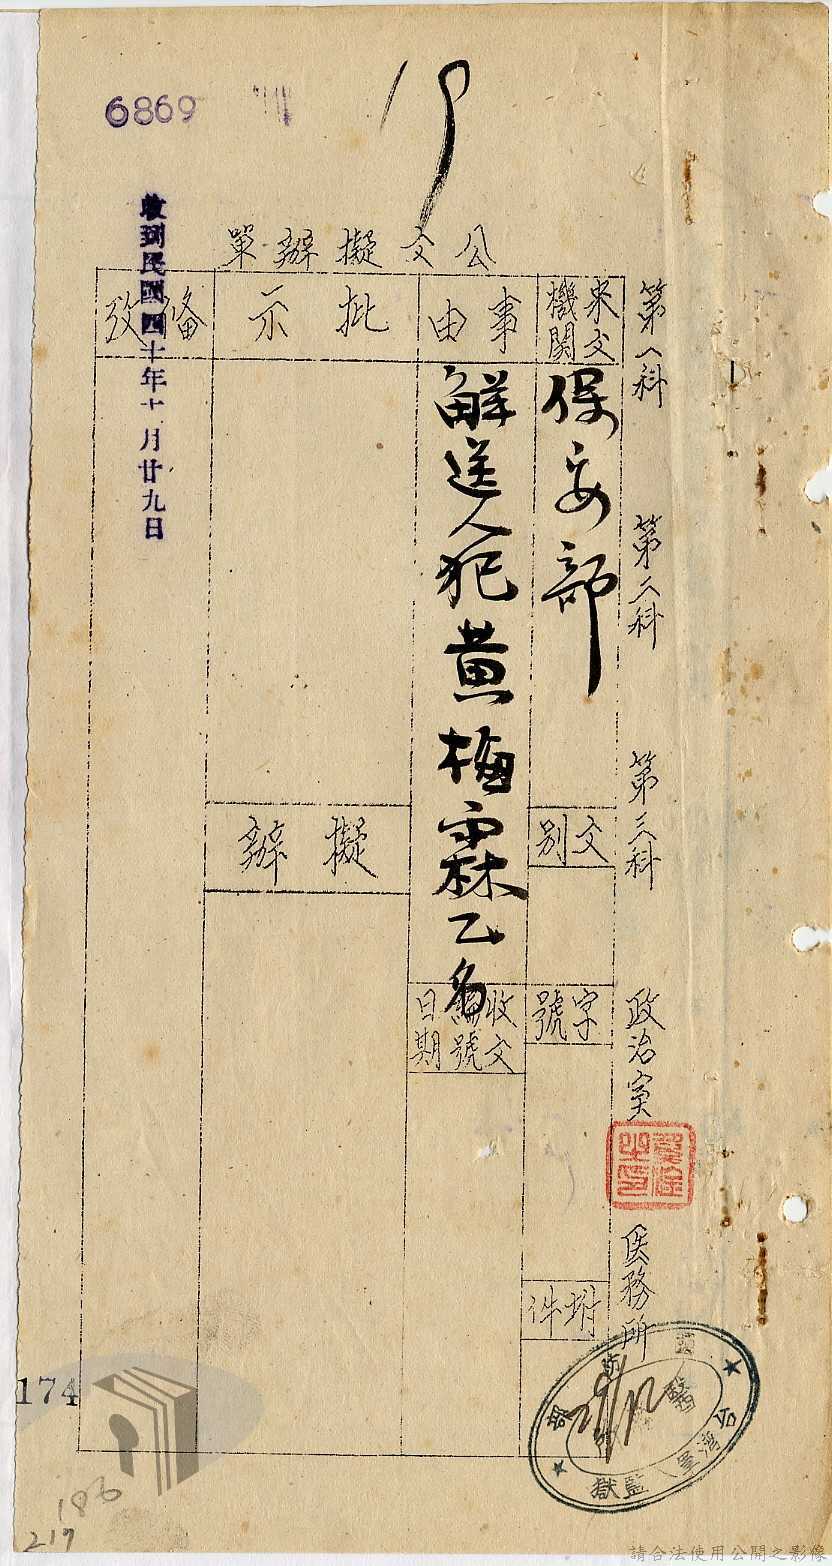 6869
收到民國四十年十一月廿九日
公文擬辦單
第一科
第二科
第三科
政治室
医務所
來文機關
保安部
文別
字號
附件
事由
解送人犯黃梅霖乙名
收文
號
日期
批示
擬辦
備攷
29/12
監獄
174
186
217
請合法使用公開之影像